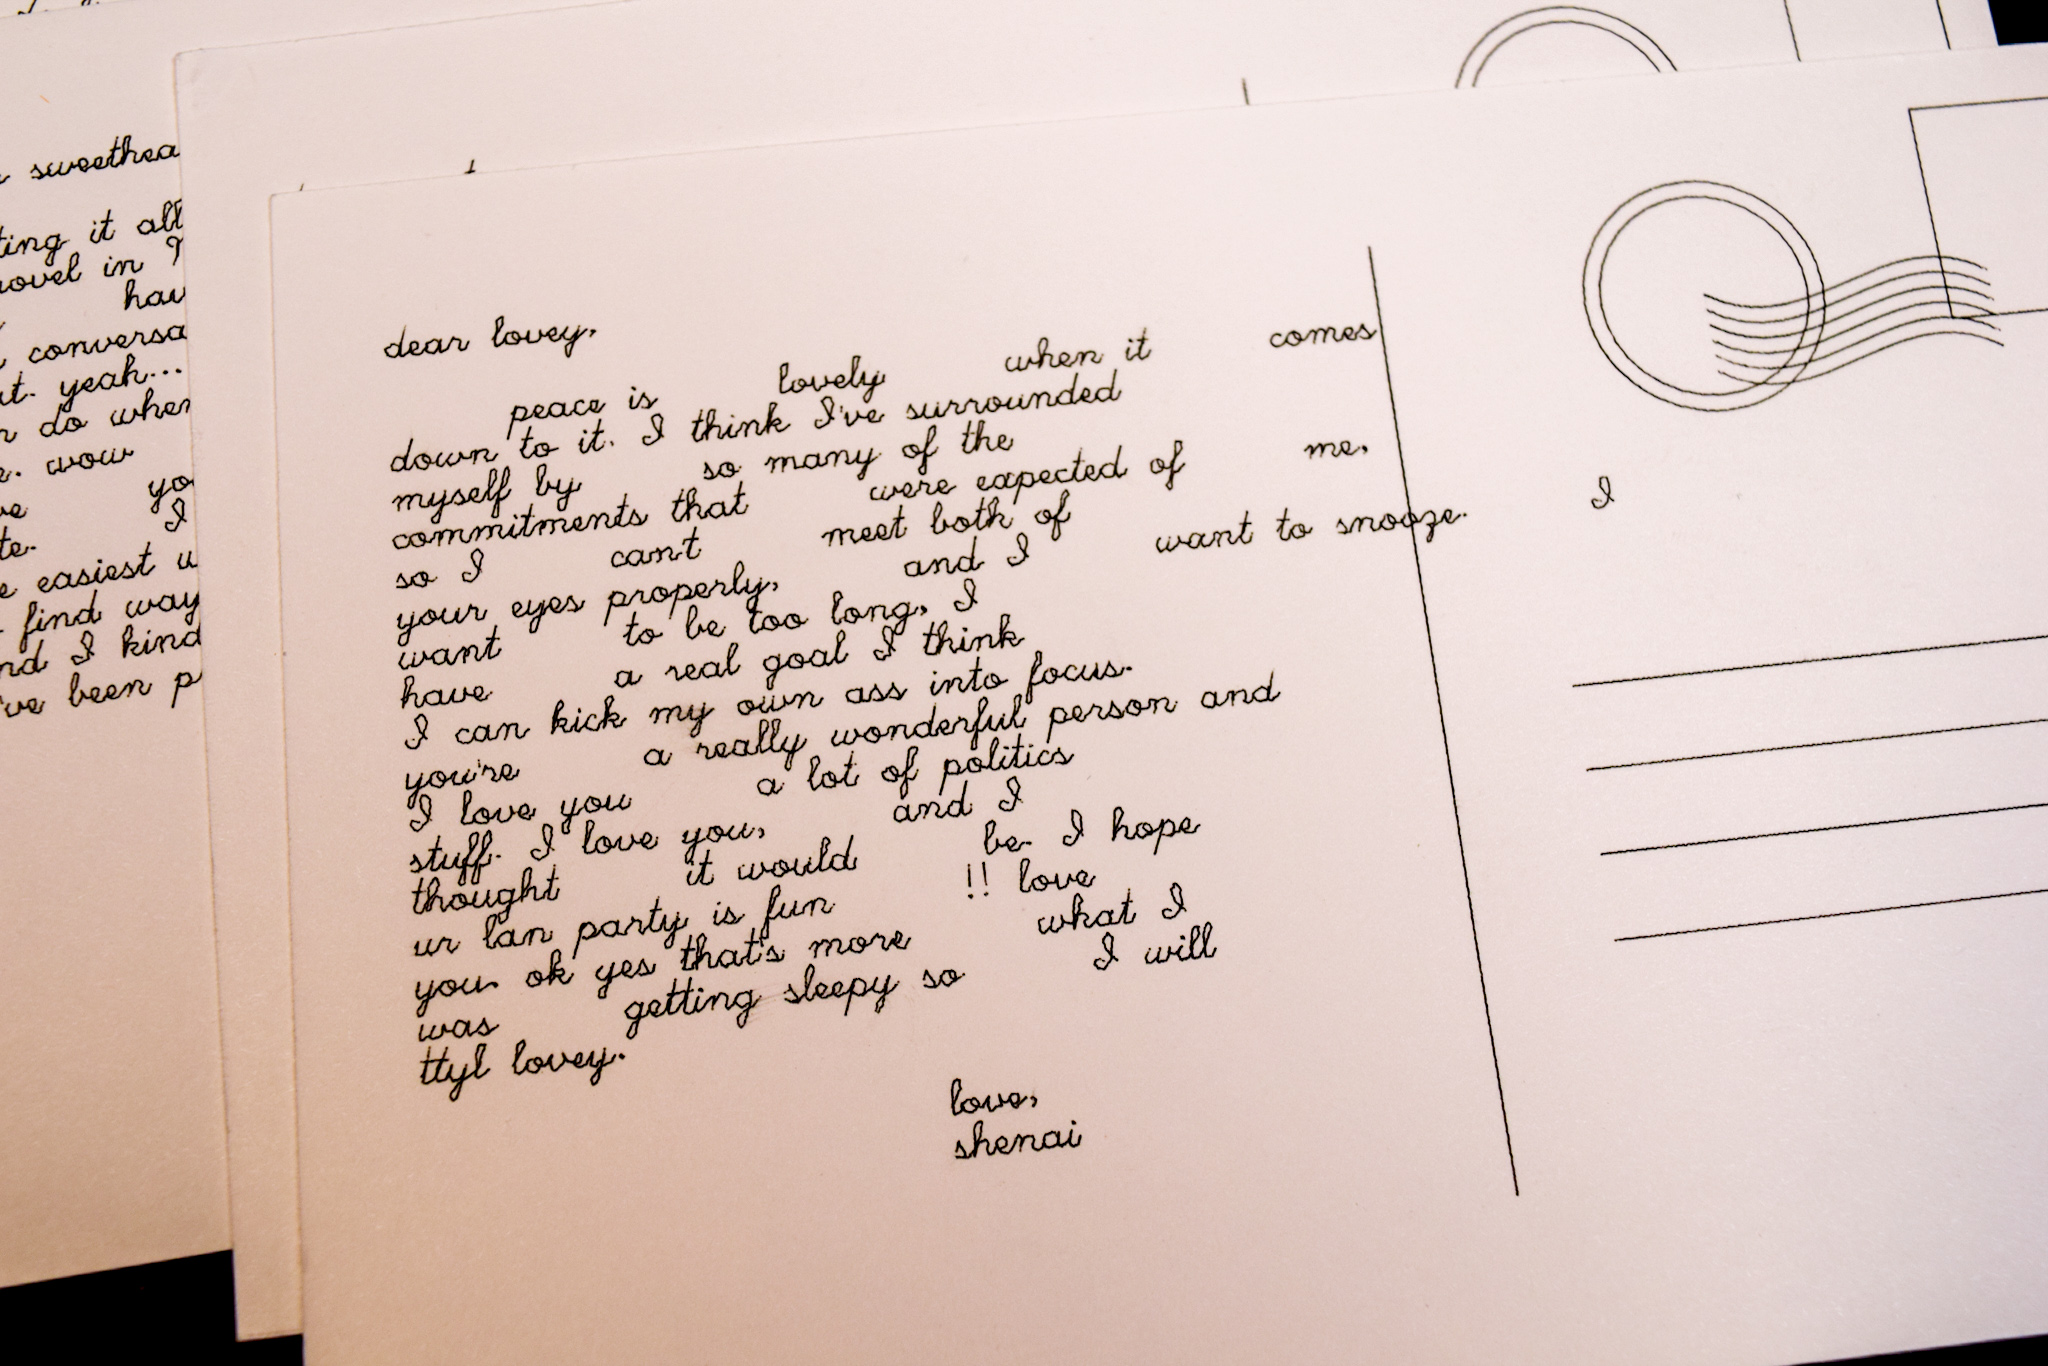 sweethea
ting it all
novel in
hav
conversa
yeah...
do when
wow
yo
I
easiest
find way
I kind
've been p
dear lovey,
peace is lovely when it comes
down to it. I think I've surrounded
myself by so many of the
commitments that were expected of me,
so I can't meet both of
your eyes properly, and I want to snooze. I
want to be too long, I
have a real goal I think
I can kick my own ass into focus.
you're a really wonderful person and
I love you a lot of politics
stuff. I love you, and I
thought it would be. I hope
ur lan party is fun !! love
you. ok yes that's more what I
was getting sleepy so I will
ttyl lovey.
love,
shenai